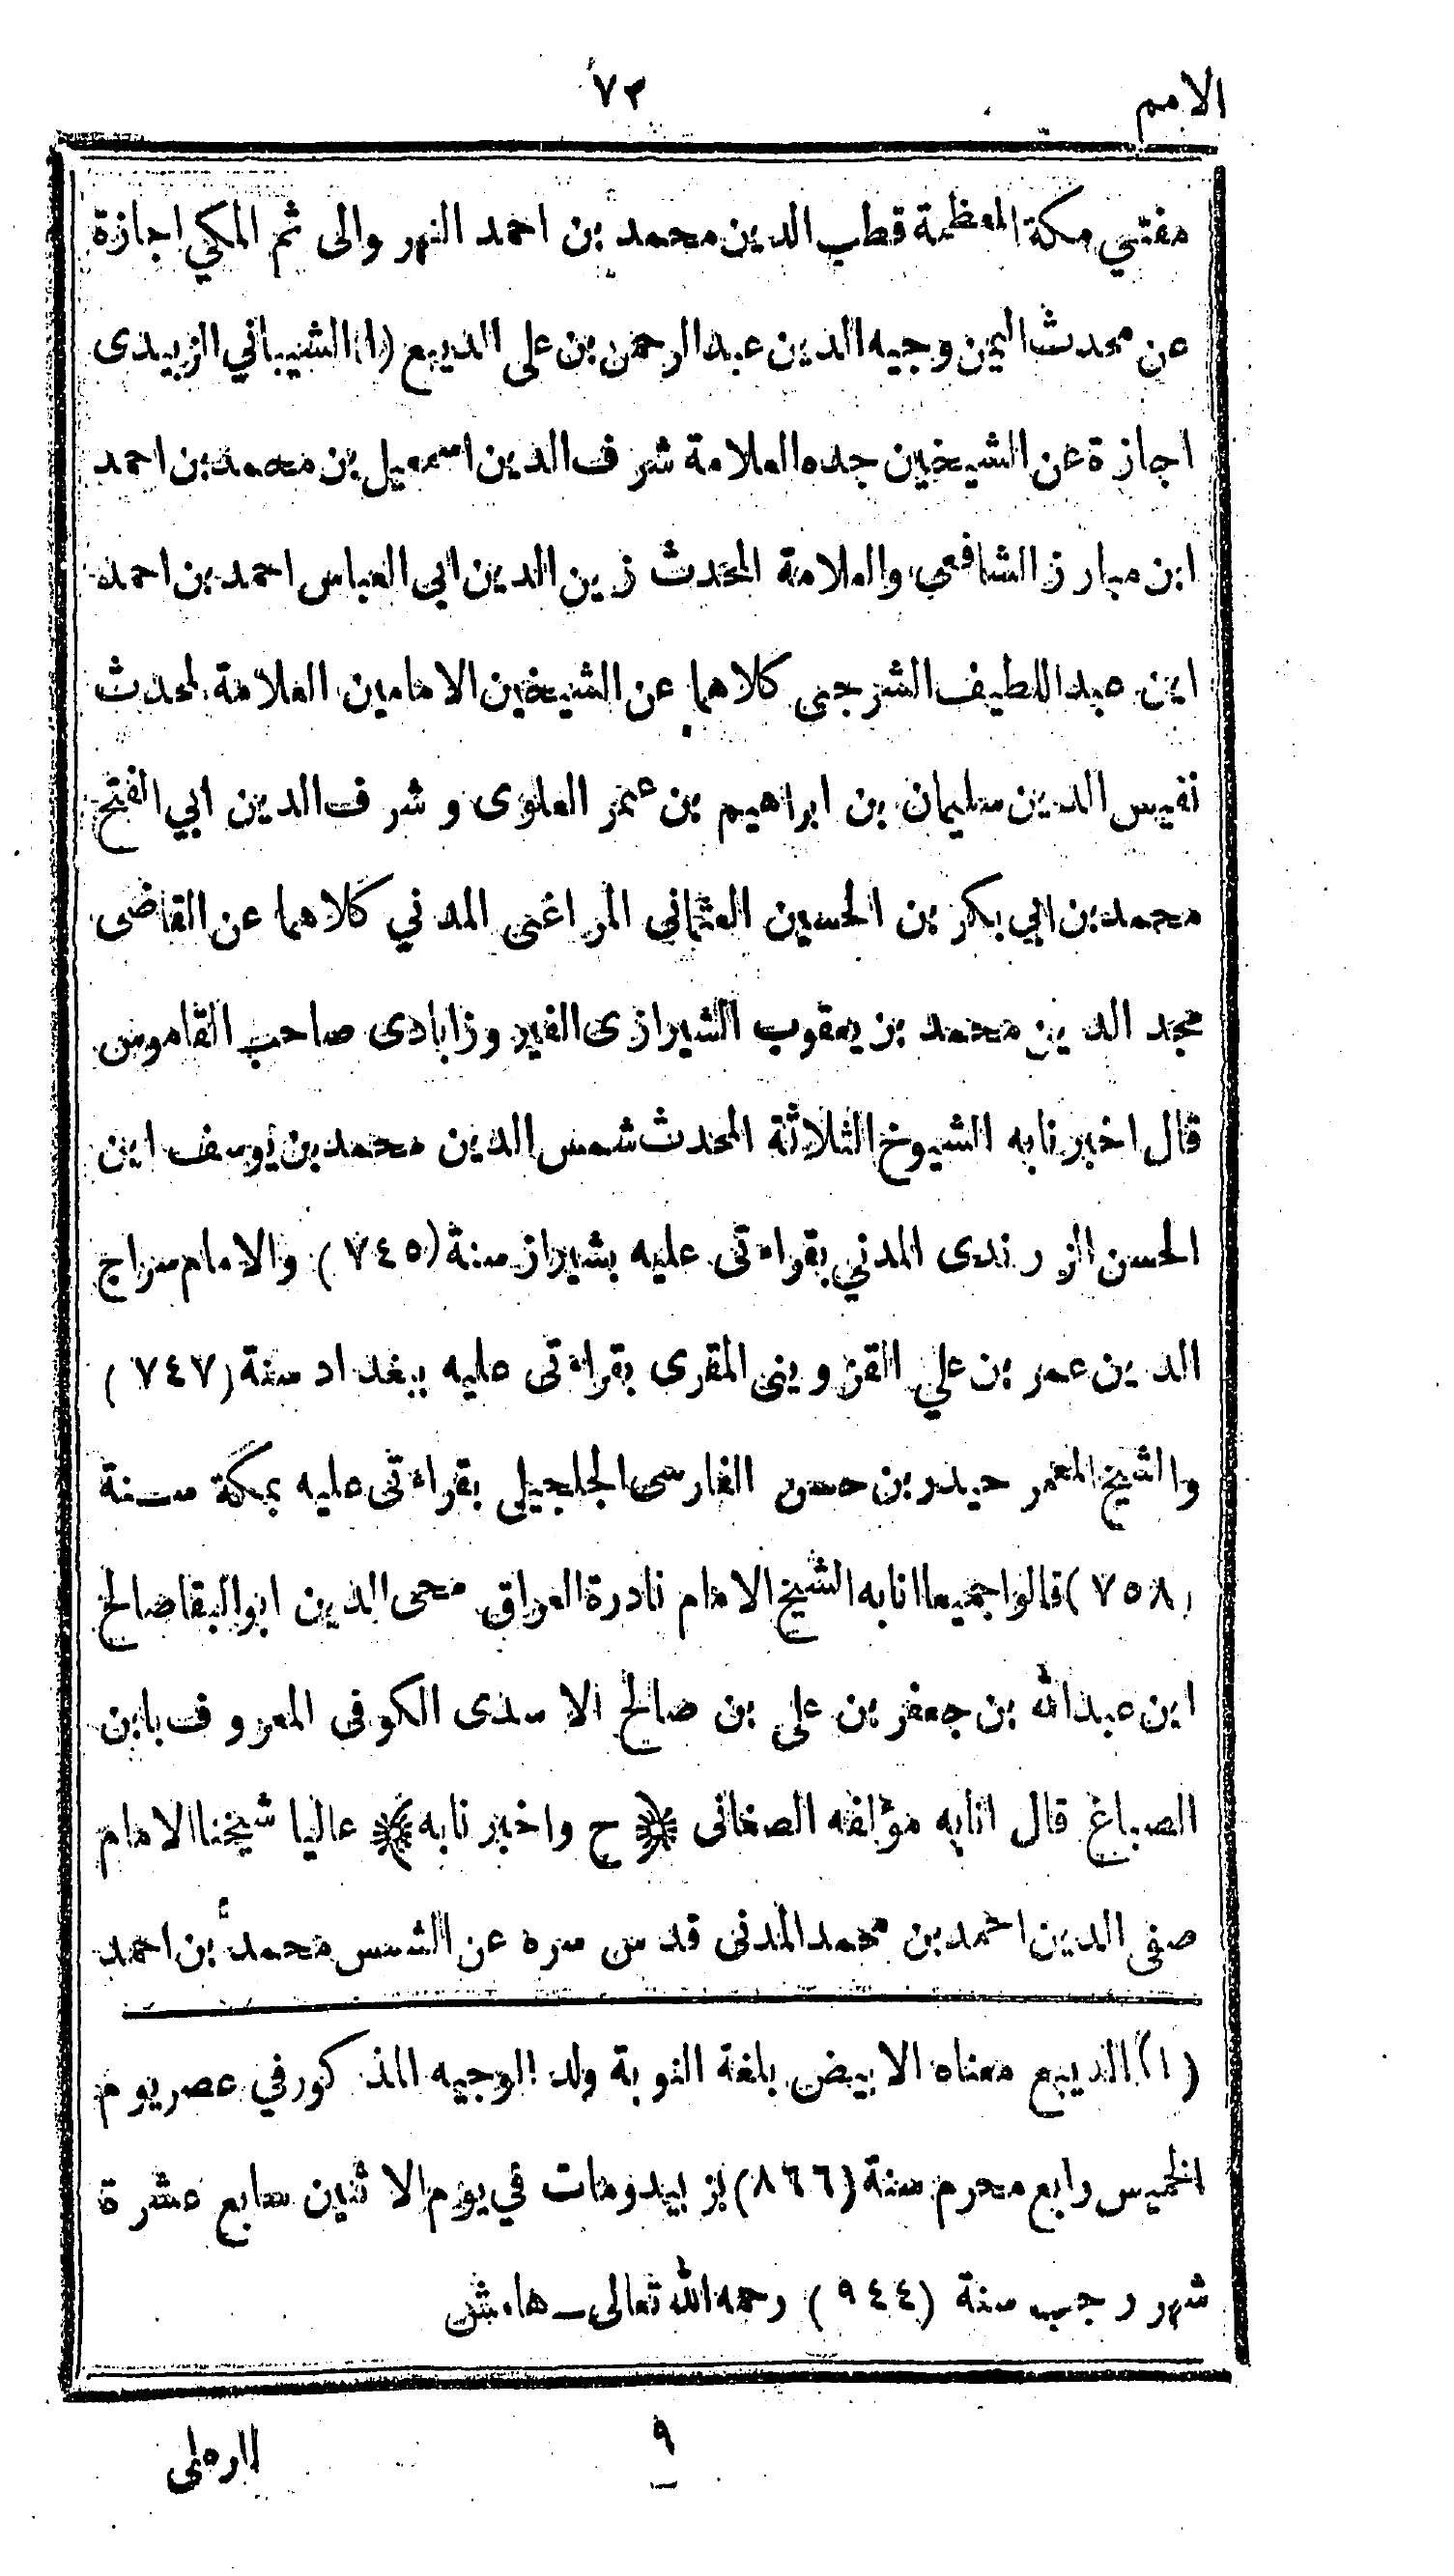 الامم
٧٣
مفتى مكة المعظمة قطب الدين محمد بن احمد النهر والى ثم المكي اجازة
عن محدث اليمن وجيه الدين عبد الرحمن بن على الديبع (١) الشيباني الزبيدى
اجازة عن الشيخين جده العلامة شرف الدين اسمعيل بن محمد بن احمد
ابن مبارز الشافعي والعلامة المحدث زين الدين ابي العباس احمد بن احمد
ابن عبد اللطيف الشرجى كلاهما عن الشيخين الامامين العلامة المحدث
نفيس الدين سليمان بن ابراهيم بن عمر العلوى وشرف الدين ابي الفتح
محمد بن ابي بكر بن الحسين العثمانى المراغى المدني كلاهما عن القاضى
مجد الدين محمد بن يعقوب الشيرازى الفيروزابادى صاحب القاموس
قال اخبرنا به الشيوخ الثلاثة المحدث شمس الدين محمد بن يوسف ابن
الحسن الزرندى المدني بقراءتى عليه بشيراز سنة (٧٤٥) والامام سراج
الدين عمر بن علي القزوينى المقرى بقراءتى عليه ببغداد سنة (٧٤٧)
والشيخ المعمر حيدر بن حسن الفارسى الجلجيلى بقراءتى عليه بمكة سنة
(٧٥٨) قالوا جميعا انا به الشيخ الامام نادرة العراق محى الدين ابو البقا صالح
ابن عبد الله بن جعفر بن على بن صالح الاسدى الكوفى المعروف بابن
الصباغ قال انا به مؤلفه الصغانى ﴿ح واخبرنا به﴾ عاليا شيخنا الامام
صفى الدين احمد بن محمد المدنى قدس سره عن الشمس محمد بن احمد
(١) الديبع معناه الابيض بلغة النوبة ولد الوجيه المذكور في عصر يوم
الخميس رابع محرم سنة (٨٦٦) بزبيد ومات في يوم الاثنين سابع عشرة
شهر رجب سنة (٩٤٤) رحمه الله تعالى ــ هامش
٩
الرملى